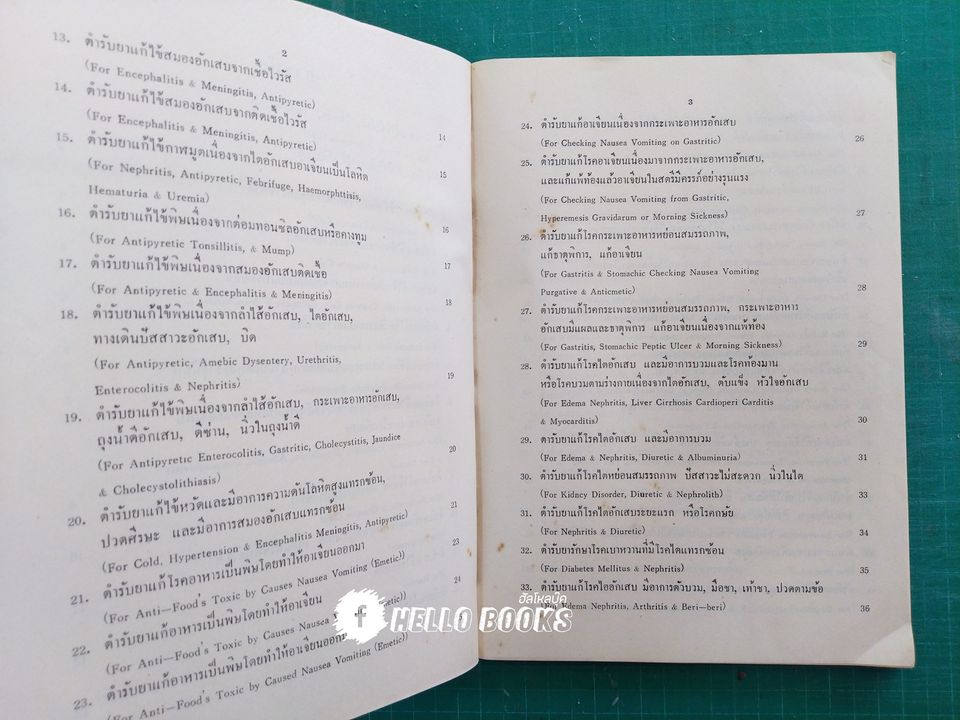 2
13. ตำรับยาแก้ไข้สมองอักเสบจากเชื้อไวรัส
(For Encephalitis & Meningitis, Antipyretic)
14. ตำรับยาแก้ไข้สมองอักเสบจากติดเชื้อไวรัส 14
(For Encephalitis & Meningitis, Antipyretic)
15. ตำรับยาแก้ไข้กาฬมูตเนื่องจากไตอักเสบอาเจียนเป็นโลหิต 15
(For Nephritis, Antipyretic, Febrifuge, Haemorphttisis,
Hematuria & Uremia)
16. ตำรับยาแก้ไข้พิษเนื่องจากต่อมทอนซิลอักเสบหรือคางทูม 16
(For Antipyretic Tonsillitis, & Mump)
17. ตำรับยาแก้ไข้พิษเนื่องจากสมองอักเสบติดเชื้อ 17
(For Antipyretic & Encephalitis & Meningitis)
18. ตำรับยาแก้ไข้พิษเนื่องจากลำไส้อักเสบ, ไตอักเสบ, 18
ทางเดินปัสสาวะอักเสบ, บิด
(For Antipyretic, Amebic Dysentery, Urethritis,
Enterocolitis & Nephritis)
19. ตำรับยาแก้ไข้พิษเนื่องจากลำไส้อักเสบ, กระเพาะอาหารอักเสบ, 19
ถุงน้ำดีอักเสบ, ดีซ่าน, นิ่วในถุงน้ำดี
(For Antipyretic Enterocolitis, Gastritic, Cholecystitis, Jaundice
& Cholecystolithiasis) 20
20. ตำรับยาแก้ไข้หวัดและมีอาการความดันโลหิตสูงแทรกซ้อน,
ปวดศีรษะ และมีอาการสมองอักเสบแทรกซ้อน
(For Cold, Hypertension & Encephalitis Meningitis, Antipyretic) 21
21. ตำรับยาแก้โรคอาหารเป็นพิษโดยทำให้อาเจียนออกมา 23
(For Anti—Food's Toxic by Causes Nausea Vomiting (Emetic))
22. ตำรับยาแก้อาหารเป็นพิษโดยทำให้อาเจียน 24
(For Anti—Food's Toxic by Causes Nausea
23. ตำรับยาแก้อาหารเป็นพิษโดยทำให้อาเจียนออกมา
(For Anti—Food's Toxic by Caused Nausea Vomiting (Emetic))
3
24. ตำรับยาแก้อาเจียนเนื่องจากกระเพาะอาหารอักเสบ
(For Checking Nausea Vomiting on Gastritic) 26
25. ตำรับยาแก้โรคอาเจียนเนื่องมาจากกระเพาะอาหารอักเสบ,
และแก้แพ้ท้องแล้วอาเจียนในสตรีมีครรภ์อย่างรุนแรง
(For Checking Nausea Vomiting from Gastritic,
Hyperemesis Gravidarum or Morning Sickness) 27
26. ตำรับยาแก้โรคกระเพาะอาหารหย่อนสมรรถภาพ,
แก้ธาตุพิการ, แก้อาเจียน
(For Gastritis & Stomachic Checking Nausea Vomiting
Purgative & Anticmetic) 28
27. ตำรับยาแก้โรคกระเพาะอาหารหย่อนสมรรถภาพ, กระเพาะอาหาร
อักเสบมีแผลและธาตุพิการ แก้อาเจียนเนื่องจากแพ้ท้อง
(For Gastritis, Stomachic Peptic Ulcer & Morning Sickness) 29
28. ตำรับยาแก้โรคไตอักเสบ และมีอาการบวมและโรคท้องมาน
หรือโรคบวมตามร่างกายเนื่องจากไตอักเสบ, ตับแข็ง หัวใจอักเสบ
(For Edema Nephritis, Liver Girrhosis Cardioperi Carditis
& Myocarditis) 30
29. ตำรับยาแก้โรคไตอักเสบ และมีอาการบวม
(For Edema & Nephritis, Diuretic & Albuminuria) 31
30. ตำรับยาแก้โรคไตหย่อนสมรรถภาพ ปัสสาวะไม่สะดวก นิ่วในไต
(For Kidney Disorder, Diuretic & Nephrolith) 33
31. ตำรับยาแก้โรคไตอักเสบระยะแรก หรือโรคกษัย
(For Nephritis & Diuretic) 34
32. ตำรับรักษาโรคเบาหวานที่มีโรคไตแทรกซ้อน
(For Diabetes Mellitus & Nephritis) 35
33. ตำรับยาแก้โรคไตอักเสบ มีอาการตัวบวม, มือชา, เท้าชา, ปวดตามข้อ
(For Edema Nephritis, Arthritis & Beri—beri) 36
ฮัลโหลบุ๊ค
HELLO BOOKS